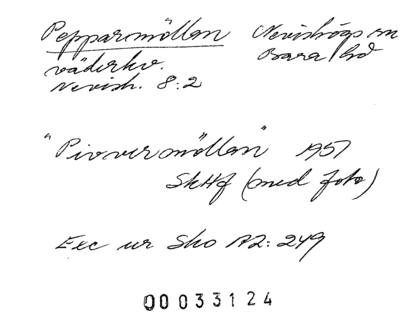 Pepparmöllan Nevishögs sn
väderkv. Bara hd
Nevish. 8:2
"Pivvermöllan" 1957
SkHf (med foto)
Exc ur Sho A2:249
00033124